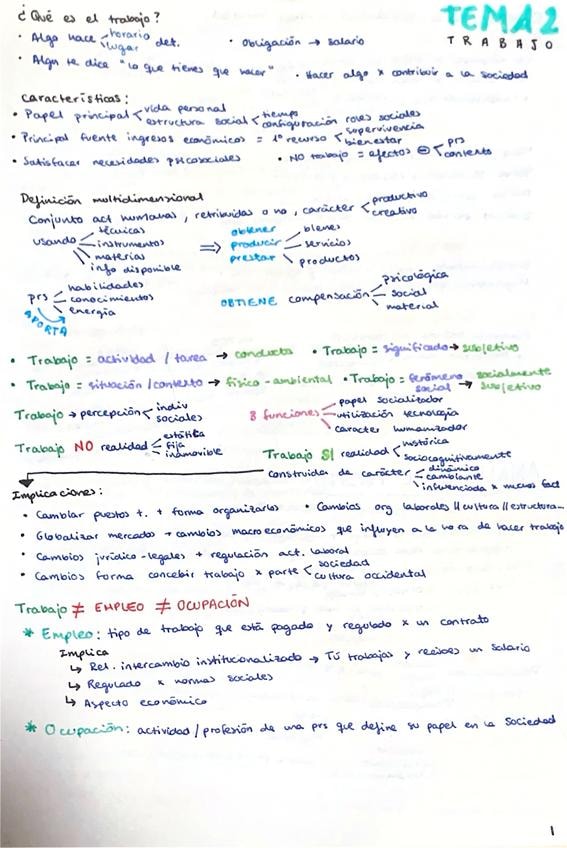 ¿Qué es el trabajo?
TEMA 2
TRABAJO
• Algo hace < horario lugar det.
• Obligación → salario
• Algn te dice "lo que tienes que hacer"
• Hacer algo x contribuir a la sociedad
Características:
• Papel principal < vida personal
estructura social < tiempo
configuración roles sociales
• Principal fuente ingresos económicos = 1º recurso < supervivencia
bienestar
• Satisfacer necesidades psicosociales
• NO trabajo = efectos ⊖ < prs
contexto
Definición multidimensional
Conjunto act humanas, retribuidas o no, carácter < productivo
creativo
usando
técnicas
instrumentos
materias
info disponible
⇒
obtener
producir
prestar
bienes
servicios
productos
prs
habilidades
conocimientos
energía
APORTA
OBTIENE compensación
psicológica
social
material
• Trabajo = actividad / tarea → conducta
• Trabajo = significado → subjetivo
• Trabajo = situación / contexto → físico-ambiental
• Trabajo = fenómeno social → socialmente subjetivo
Trabajo → percepción < indiv
sociales
3 funciones
papel socializador
utilización tecnología
carácter humanizador
Trabajo NO realidad
estática
fija
inamovible
Trabajo SÍ realidad
histórica
sociocognitivamente
construida de carácter
dinámico
cambiante
influenciada x muchos fact
Implicaciones:
• Cambiar puestos t. + forma organizarlos
• Cambios org laborales // cultura // estructura...
• Globalizar mercados → cambios macroeconómicos que influyen a la hora de hacer trabajo
• Cambios jurídico-legales + regulación act. laboral
• Cambios forma concebir trabajo x parte < sociedad
cultura occidental
Trabajo ≠ EMPLEO ≠ OCUPACIÓN
* Empleo: tipo de trabajo que está pagado y regulado x un contrato
Implica
↳ Rel. intercambio institucionalizado → Tú trabajas y recibes un salario
↳ Regulado x normas sociales
↳ Aspecto económico
* Ocupación: actividad / profesión de una prs que define su papel en la sociedad
1